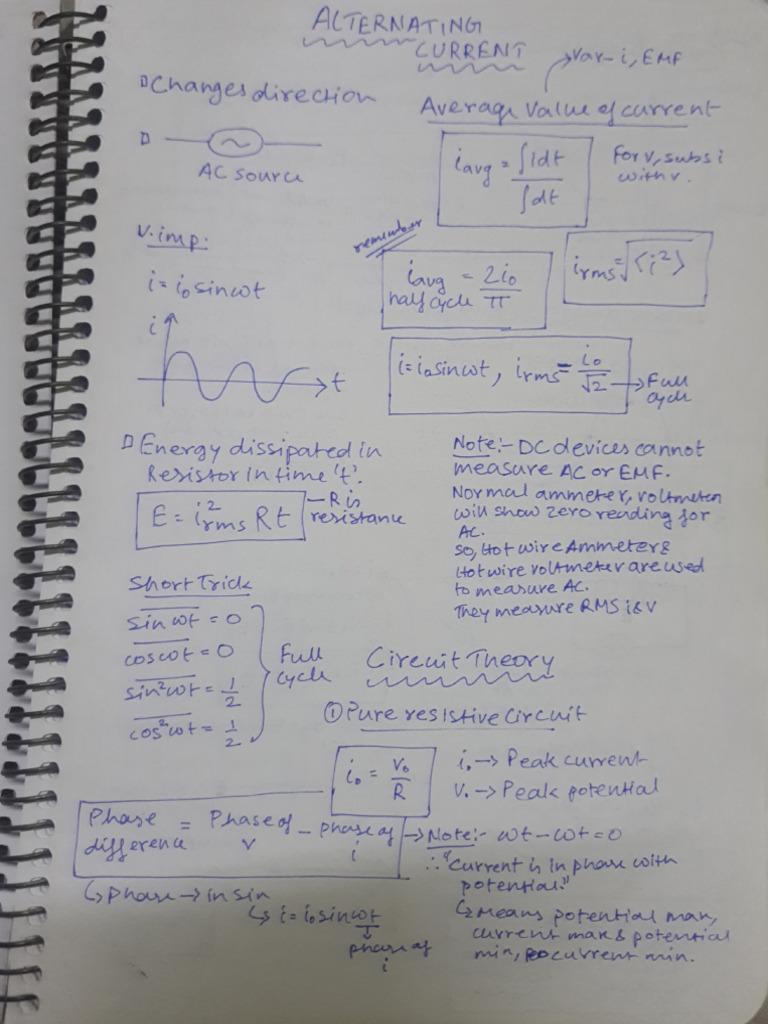 ALTERNATING
CURRENT
→ Var - i, EMF
Changes direction
AC source
Average value of current
i avg = ∫idt / ∫dt
For v, subs i
with v.
V. imp:
i = i₀ sin ωt
i
t
remember
i avg half cycle = 2i₀ / π
i rms = √⟨i²⟩
i = i₀ sin ωt, i rms = i₀ / √2 → Full
cycle
Energy dissipated in
Resistor in time 't'.
E = i²rms Rt — R is
resistance
Note:- DC devices cannot
measure AC or EMF.
Normal ammeter, voltmeter
will show zero reading for
AC.
So, Hot wire Ammeter &
Hot wire voltmeter are used
to measure AC.
They measure RMS i & V
Short Trick
s̅i̅n̅ ̅ω̅t̅ = 0
c̅o̅s̅ ̅ω̅t̅ = 0
s̅i̅n̅²̅ω̅t̅ = 1/2
c̅o̅s̅²̅ω̅t̅ = 1/2
Full
cycle
Circuit Theory
① Pure resistive circuit
i₀ = V₀ / R
i₀ → Peak current
V₀ → Peak potential
Phase difference = Phase of v - phase of i
→ Note:- ωt - ωt = 0
∴ "Current is in phase with
potential."
↳ Means potential max,
current max & potential
min, current min.
↳ Phase → in sin
↳ i = i₀ sin ωt
↓
phase of
i